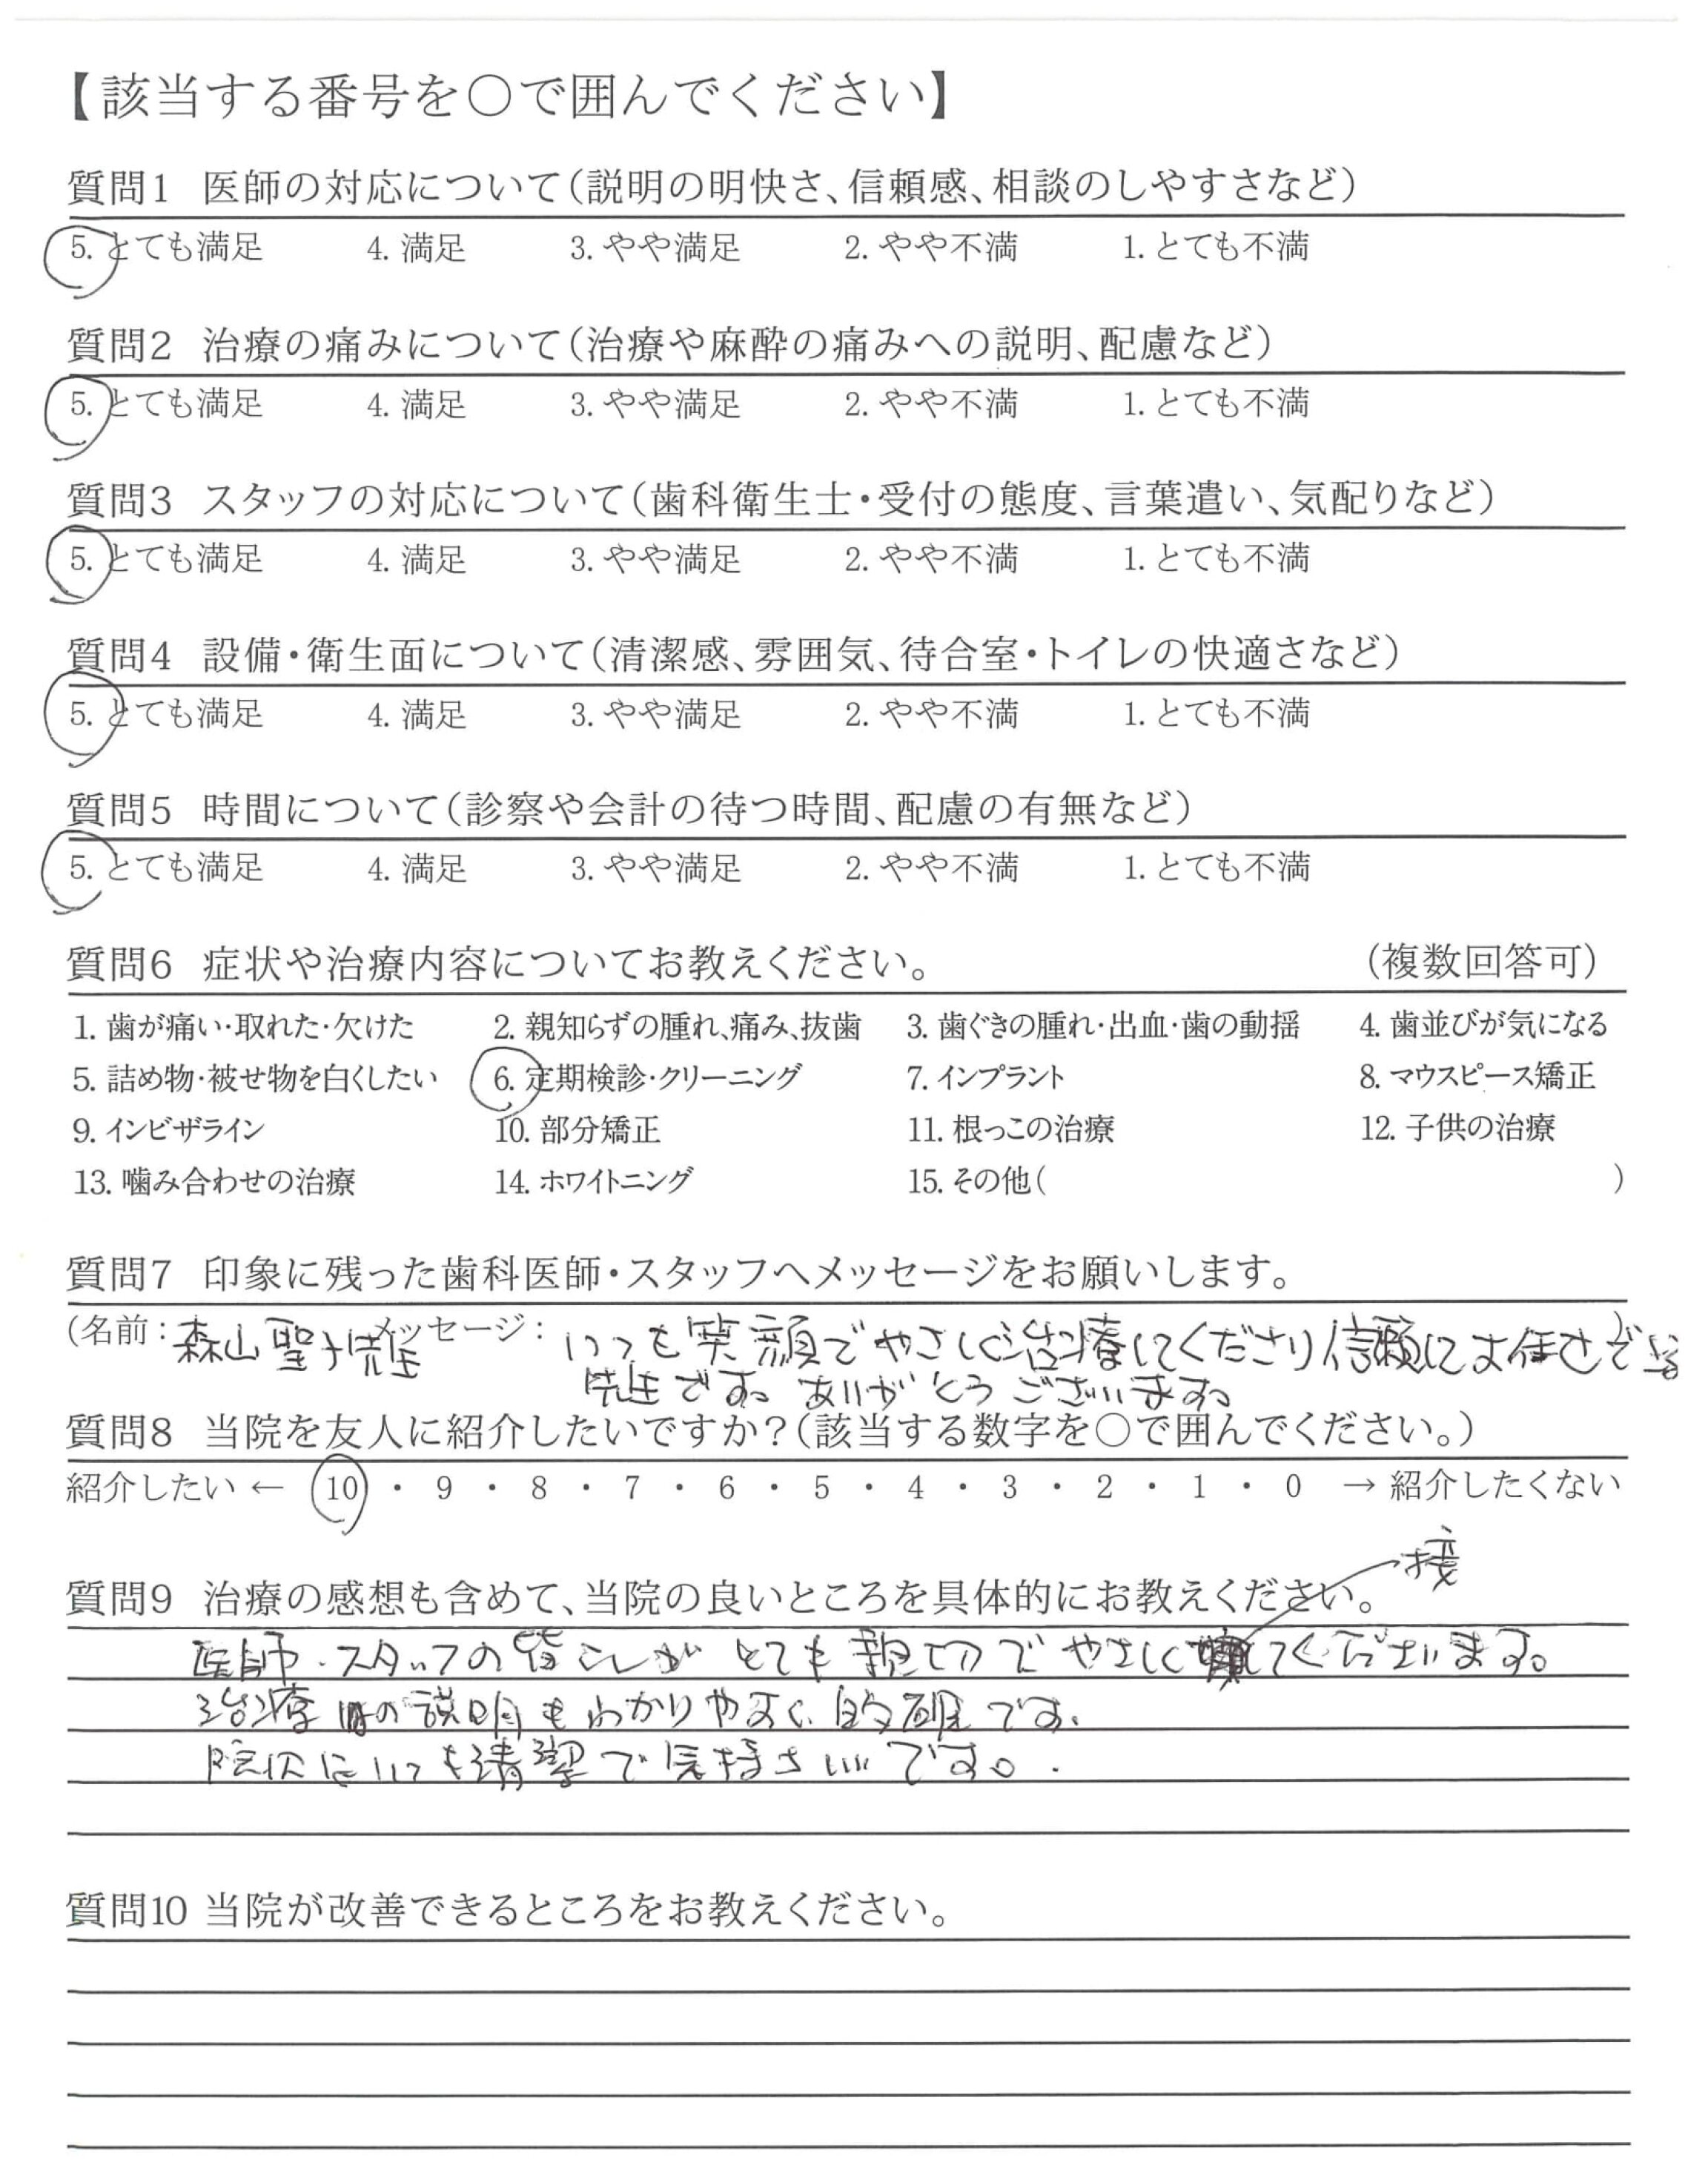 【該当する番号を○で囲んでください】
質問1 医師の対応について（説明の明快さ、信頼感、相談のしやすさなど）
5. とても満足 4. 満足 3. やや満足 2. やや不満 1. とても不満
質問2 治療の痛みについて（治療や麻酔の痛みへの説明、配慮など）
5. とても満足 4. 満足 3. やや満足 2. やや不満 1. とても不満
質問3 スタッフの対応について（歯科衛生士・受付の態度、言葉遣い、気配りなど）
5. とても満足 4. 満足 3. やや満足 2. やや不満 1. とても不満
質問4 設備・衛生面について（清潔感、雰囲気、待合室・トイレの快適さなど）
5. とても満足 4. 満足 3. やや満足 2. やや不満 1. とても不満
質問5 時間について（診察や会計の待つ時間、配慮の有無など）
5. とても満足 4. 満足 3. やや満足 2. やや不満 1. とても不満
質問6 症状や治療内容についてお教えください。 （複数回答可）
1. 歯が痛い・取れた・欠けた 2. 親知らずの腫れ、痛み、抜歯 3. 歯ぐきの腫れ・出血・歯の動揺 4. 歯並びが気になる
5. 詰め物・被せ物を白くしたい 6. 定期検診・クリーニング 7. インプラント 8. マウスピース矯正
9. インビザライン 10. 部分矯正 11. 根っこの治療 12. 子供の治療
13. 噛み合わせの治療 14. ホワイトニング 15. その他（ ）
質問7 印象に残った歯科医師・スタッフへメッセージをお願いします。
（名前：森山聖子先生 メッセージ：いつも笑顔でやさしく治療してくださり信頼してお任せできる）
先生です。ありがとうございます。
質問8 当院を友人に紹介したいですか？（該当する数字を○で囲んでください。）
紹介したい ← 10 ・ 9 ・ 8 ・ 7 ・ 6 ・ 5 ・ 4 ・ 3 ・ 2 ・ 1 ・ 0 → 紹介したくない
接
質問9 治療の感想も含めて、当院の良いところを具体的にお教えください。
医師・スタッフの皆さんがとても親切でやさしくしてくださいます。
治療時の説明もわかりやすく的確です。
院内はいつも清潔で気持ちいいです。
質問10 当院が改善できるところをお教えください。